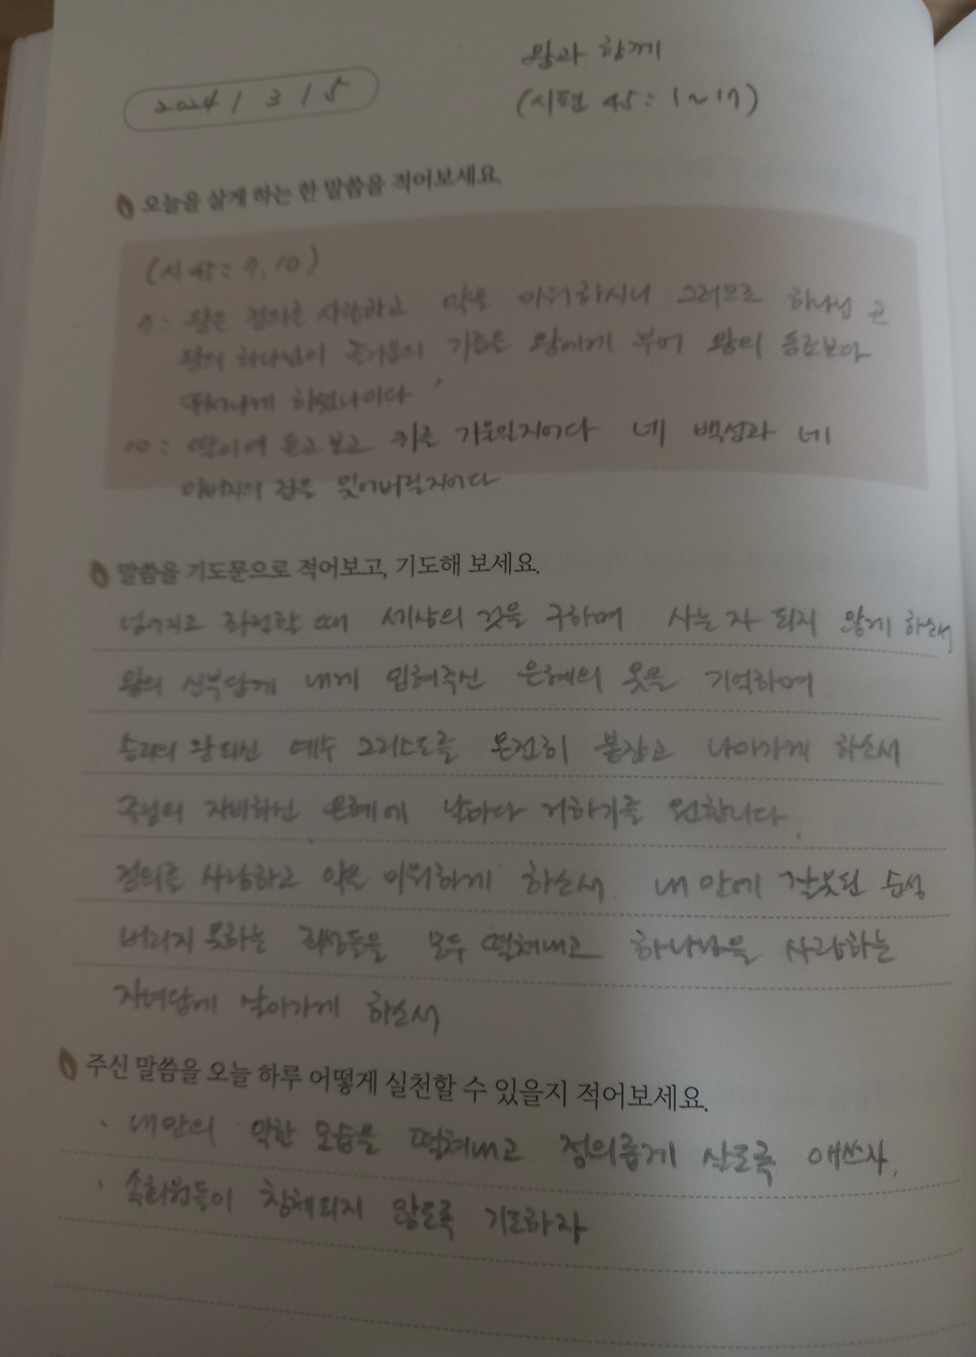 왕과 함께
2024 / 3 / 5
(시편 45: 1~17)
오늘을 살게 하는 한 말씀을 적어보세요.
(시 45: 7, 10)
7: 왕은 정의를 사랑하고 악을 미워하시니 그러므로 하나님 곧
왕의 하나님이 즐거움의 기름을 왕에게 부어 왕의 동료보다
뛰어나게 하셨나이다
10: 딸이여 듣고 보고 귀를 기울일지어다 네 백성과 네
아버지의 집을 잊어버릴지어다
말씀을 기도문으로 적어보고, 기도해 보세요.
넘어지고 때 세상의 것을 구하며 사는 자 되지 않게 하소서
왕의 신부답게 내게 입혀주신 은혜의 옷을 기억하며
승리의 왕 되신 예수 그리스도를 온전히 붙잡고 나아가게 하소서
주님의 자비하신 은혜에 날마다 거하기를 원합니다.
정의를 사랑하고 악을 미워하게 하소서. 내 안에 잘못된 습성
버리지 못하는 죄성들을 모두 떨쳐내고 하나님을 사랑하는
자녀답게 살아가게 하소서
주신 말씀을 오늘 하루 어떻게 실천할 수 있을지 적어보세요.
· 내 안의 악한 모습을 떨쳐내고 정의롭게 살도록 애쓰자.
· 속회원들이 침체되지 않도록 기도하자